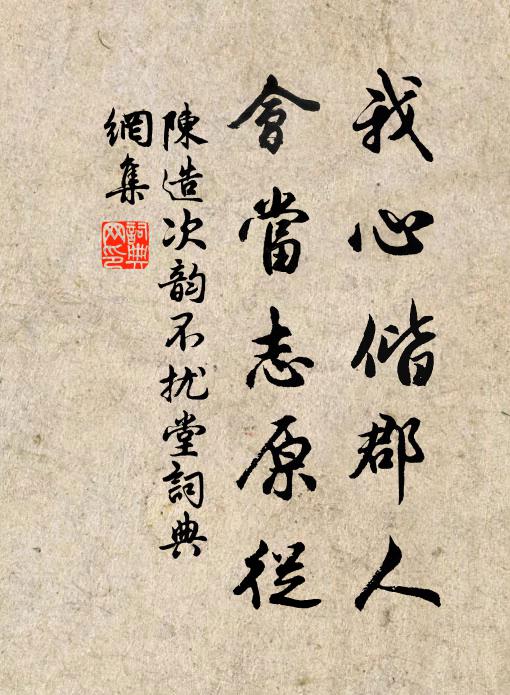 我心偕郡人
會當志原從
陳造次韵不扰堂詞典
網集
詞典
网印